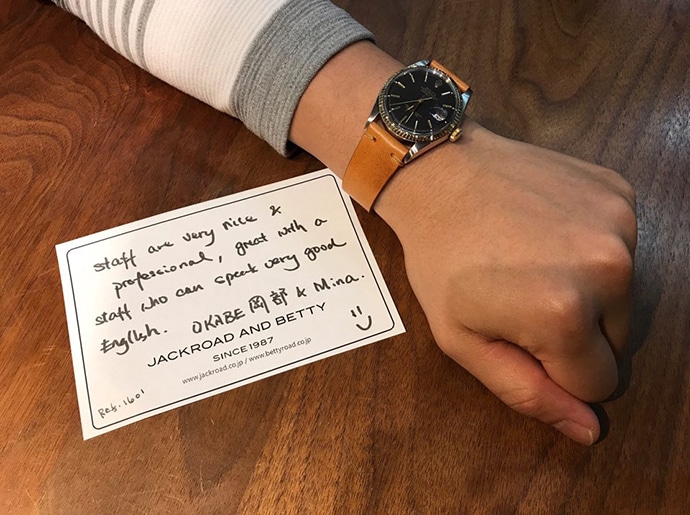 staff are very nice &
professional, great with a
staff who can speak very good
English. OKABE 岡部 & Mina.
JACKROAD AND BETTY
SINCE 1987
www.jackroad.co.jp / www.bettyroad.co.jp
Ref. 1601
ROLEX